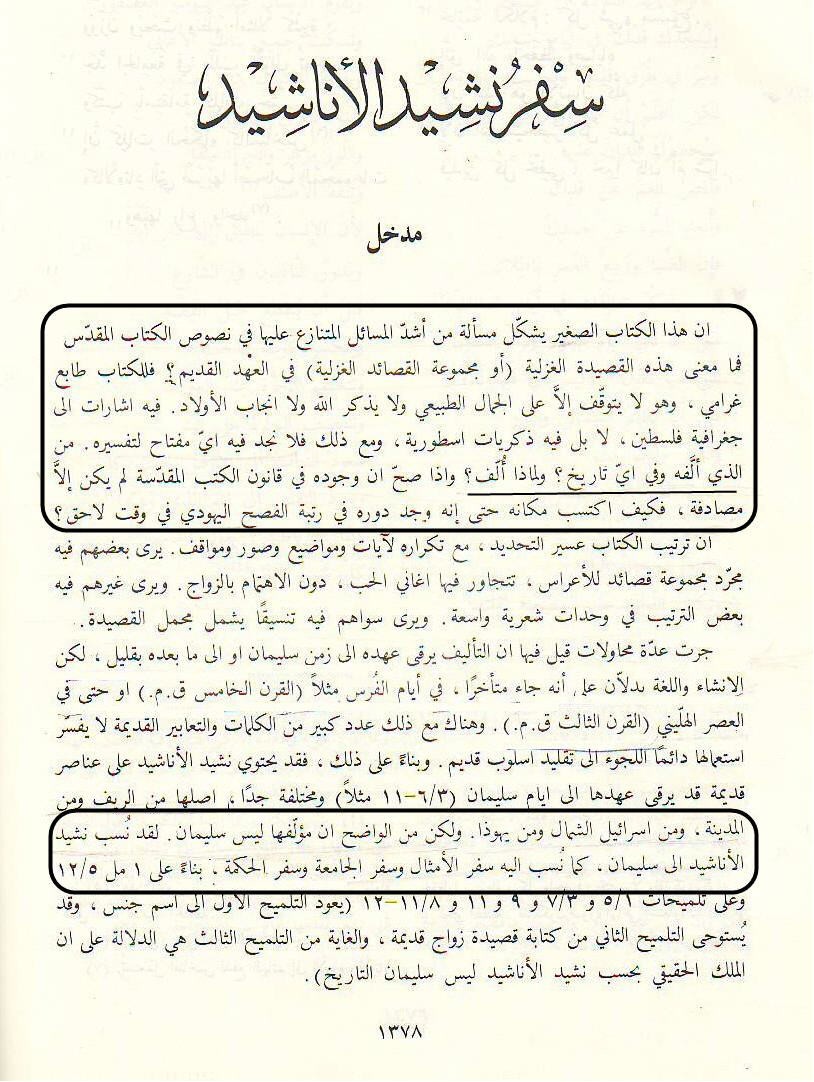 سِفْرُ نشِيد الأناشِيد
مدخل
ان هذا الكتاب الصغير يشكّل مسألة من أشدّ المسائل المتنازع عليها في نصوص الكتاب المقدّس
فما معنى هذه القصيدة الغزلية (أو مجموعة القصائد الغزلية) في العهد القديم؟ فللكتاب طابع
غرامي ، وهو لا يتوقّف إلاَّ على الجمال الطبيعي ولا يذكر الله ولا انجاب الأولاد. فيه اشارات الى
جغرافية فلسطين، لا بل فيه ذكريات اسطورية، ومع ذلك فلا نجد فيه ايّ مفتاح لتفسيره. من
الذي ألَّفه وفي ايّ تاريخ؟ ولماذا أُلِّف؟ واذا صحّ ان وجوده في قانون الكتب المقدّسة لم يكن إلاَّ
مصادفة ، فكيف اكتسب مكانه حتى إنه وجد دوره في رتبة الفصح اليهودي في وقت لاحق؟
ان ترتيب الكتاب عسير التحديد ، مع تكراره لآيات ومواضيع وصور ومواقف. يرى بعضهم فيه
مجرّد مجموعة قصائد للأعراس ، تتجاور فيها اغاني الحب ، دون الاهتمام بالزواج. ويرى غيرهم فيه
بعض الترتيب في وحدات شعرية واسعة. ويرى سواهم فيه تنسيقًا يشمل مجمل القصيدة.
جرت عدّة محاولات قيل فيها ان التأليف يرقى عهده الى زمن سليمان او الى ما بعده بقليل ، لكن
الانشاء واللغة يدلاّن على أنه جاء متأخرًا ، في أيام الفُرس مثلاً (القرن الخامس ق.م.) او حتى في
العصر الهلّيني (القرن الثالث ق.م.). وهناك مع ذلك عدد كبير من الكلمات والتعابير القديمة لا يفسّر
استعمالها دائمًا اللجوء الى تقليد اسلوب قديم. وبناءً على ذلك ، فقد يحتوي نشيد الأناشيد على عناصر
قديمة قد يرقى عهدها الى ايام سليمان (٦/٣-١١ مثلاً) ومختلفة جدًا ، اصلها من الريف ومن
المدينة ، ومن اسرائيل الشمال ومن يهوذا. ولكن من الواضح ان مؤلّفها ليس سليمان. لقد نُسب نشيد
الأناشيد الى سليمان ، كما نُسب اليه سفر الأمثال وسفر الجامعة وسفر الحكمة ، بناءً على ١ مل ١٢/٥
وعلى تلميحات ٥/١ و ٧/٣ و ٩ و ١١ و ١١/٨-١٢ (يعود التلميح الاول الى اسم جنس ، وقد
يُستوحى التلميح الثاني من كتابة قصيدة زواج قديمة ، والغاية من التلميح الثالث هي الدلالة على ان
الملك الحقيقي بحسب نشيد الأناشيد ليس سليمان التاريخ).
١٣٧٨